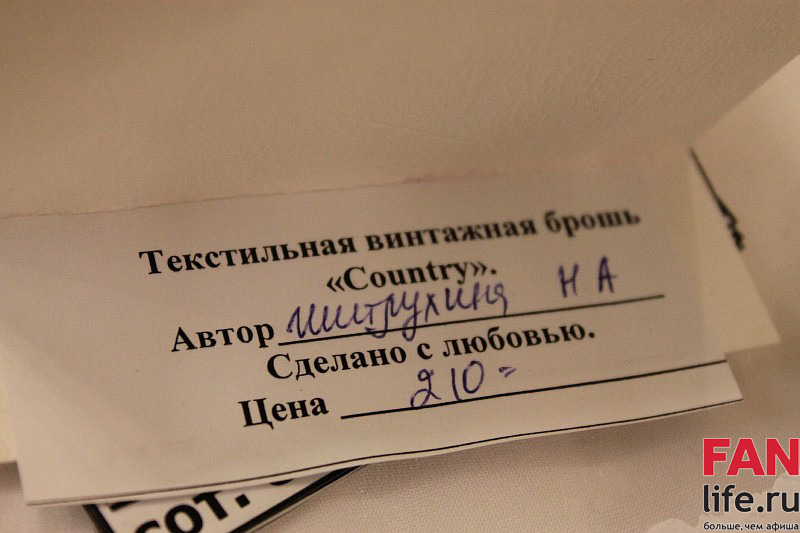 Текстильная винтажная брошь
«Country».
Автор Митрухина Н А
Сделано с любовью.
Цена 210=
сот.
FAN
life.ru
больше, чем афиша